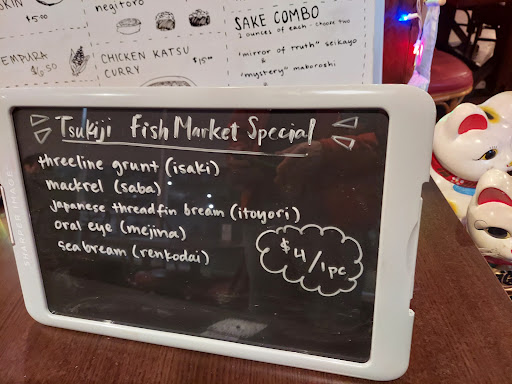 SKIN
$5.00
negitoro
SAKE COMBO
2 ounces of each - choose two
"mirror of truth" seikayo
&
"mystery" maboroshi
EMPURA
$6.50
CHICKEN KATSU
CURRY
$15.00
Tsukiji Fish Market Special
threeline grunt (isaki)
mackrel (saba)
japanese threadfin bream (itoyori)
oral eye (mejina)
seabream (renkodai)
$4/1pc
SHARPER IMAGE